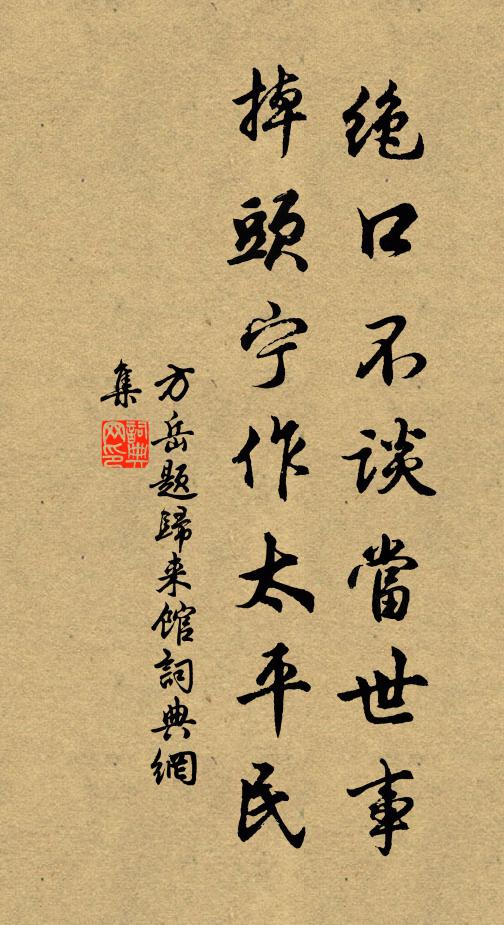 绝口不谈當世事
掉頭宁作太平民
方岳題歸来馆詞典網
集
詞典網印